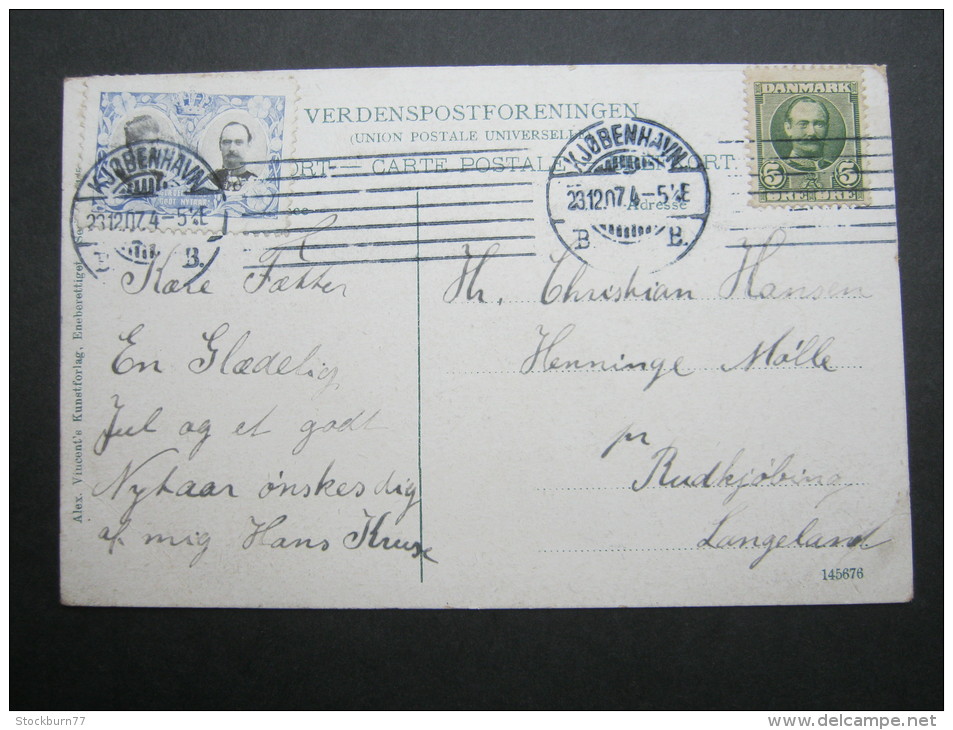 VERDENSPOSTFORENINGEN
(UNION POSTALE UNIVERSELLE)
CARTE POSTALE
DANMARK
5 5
ØRE ØRE
KJØBENHAVN
23.12.07. 4-5½E
B.
KJØBENHAVN
23.12.07. 4-5½E
B B.
GODT NYTAAR
Adresse
Kære Fætter
En Glædelig
Jul og et godt
Nytaar ønskes dig
af mig Hans Kruse
Hr. Christian Hansen
Henninge Mølle
pr
Rudkjöbing
Langeland
145676
Alex. Vincent's Kunstforlag, Eneberettiget
Stockburn77
delcampe.net